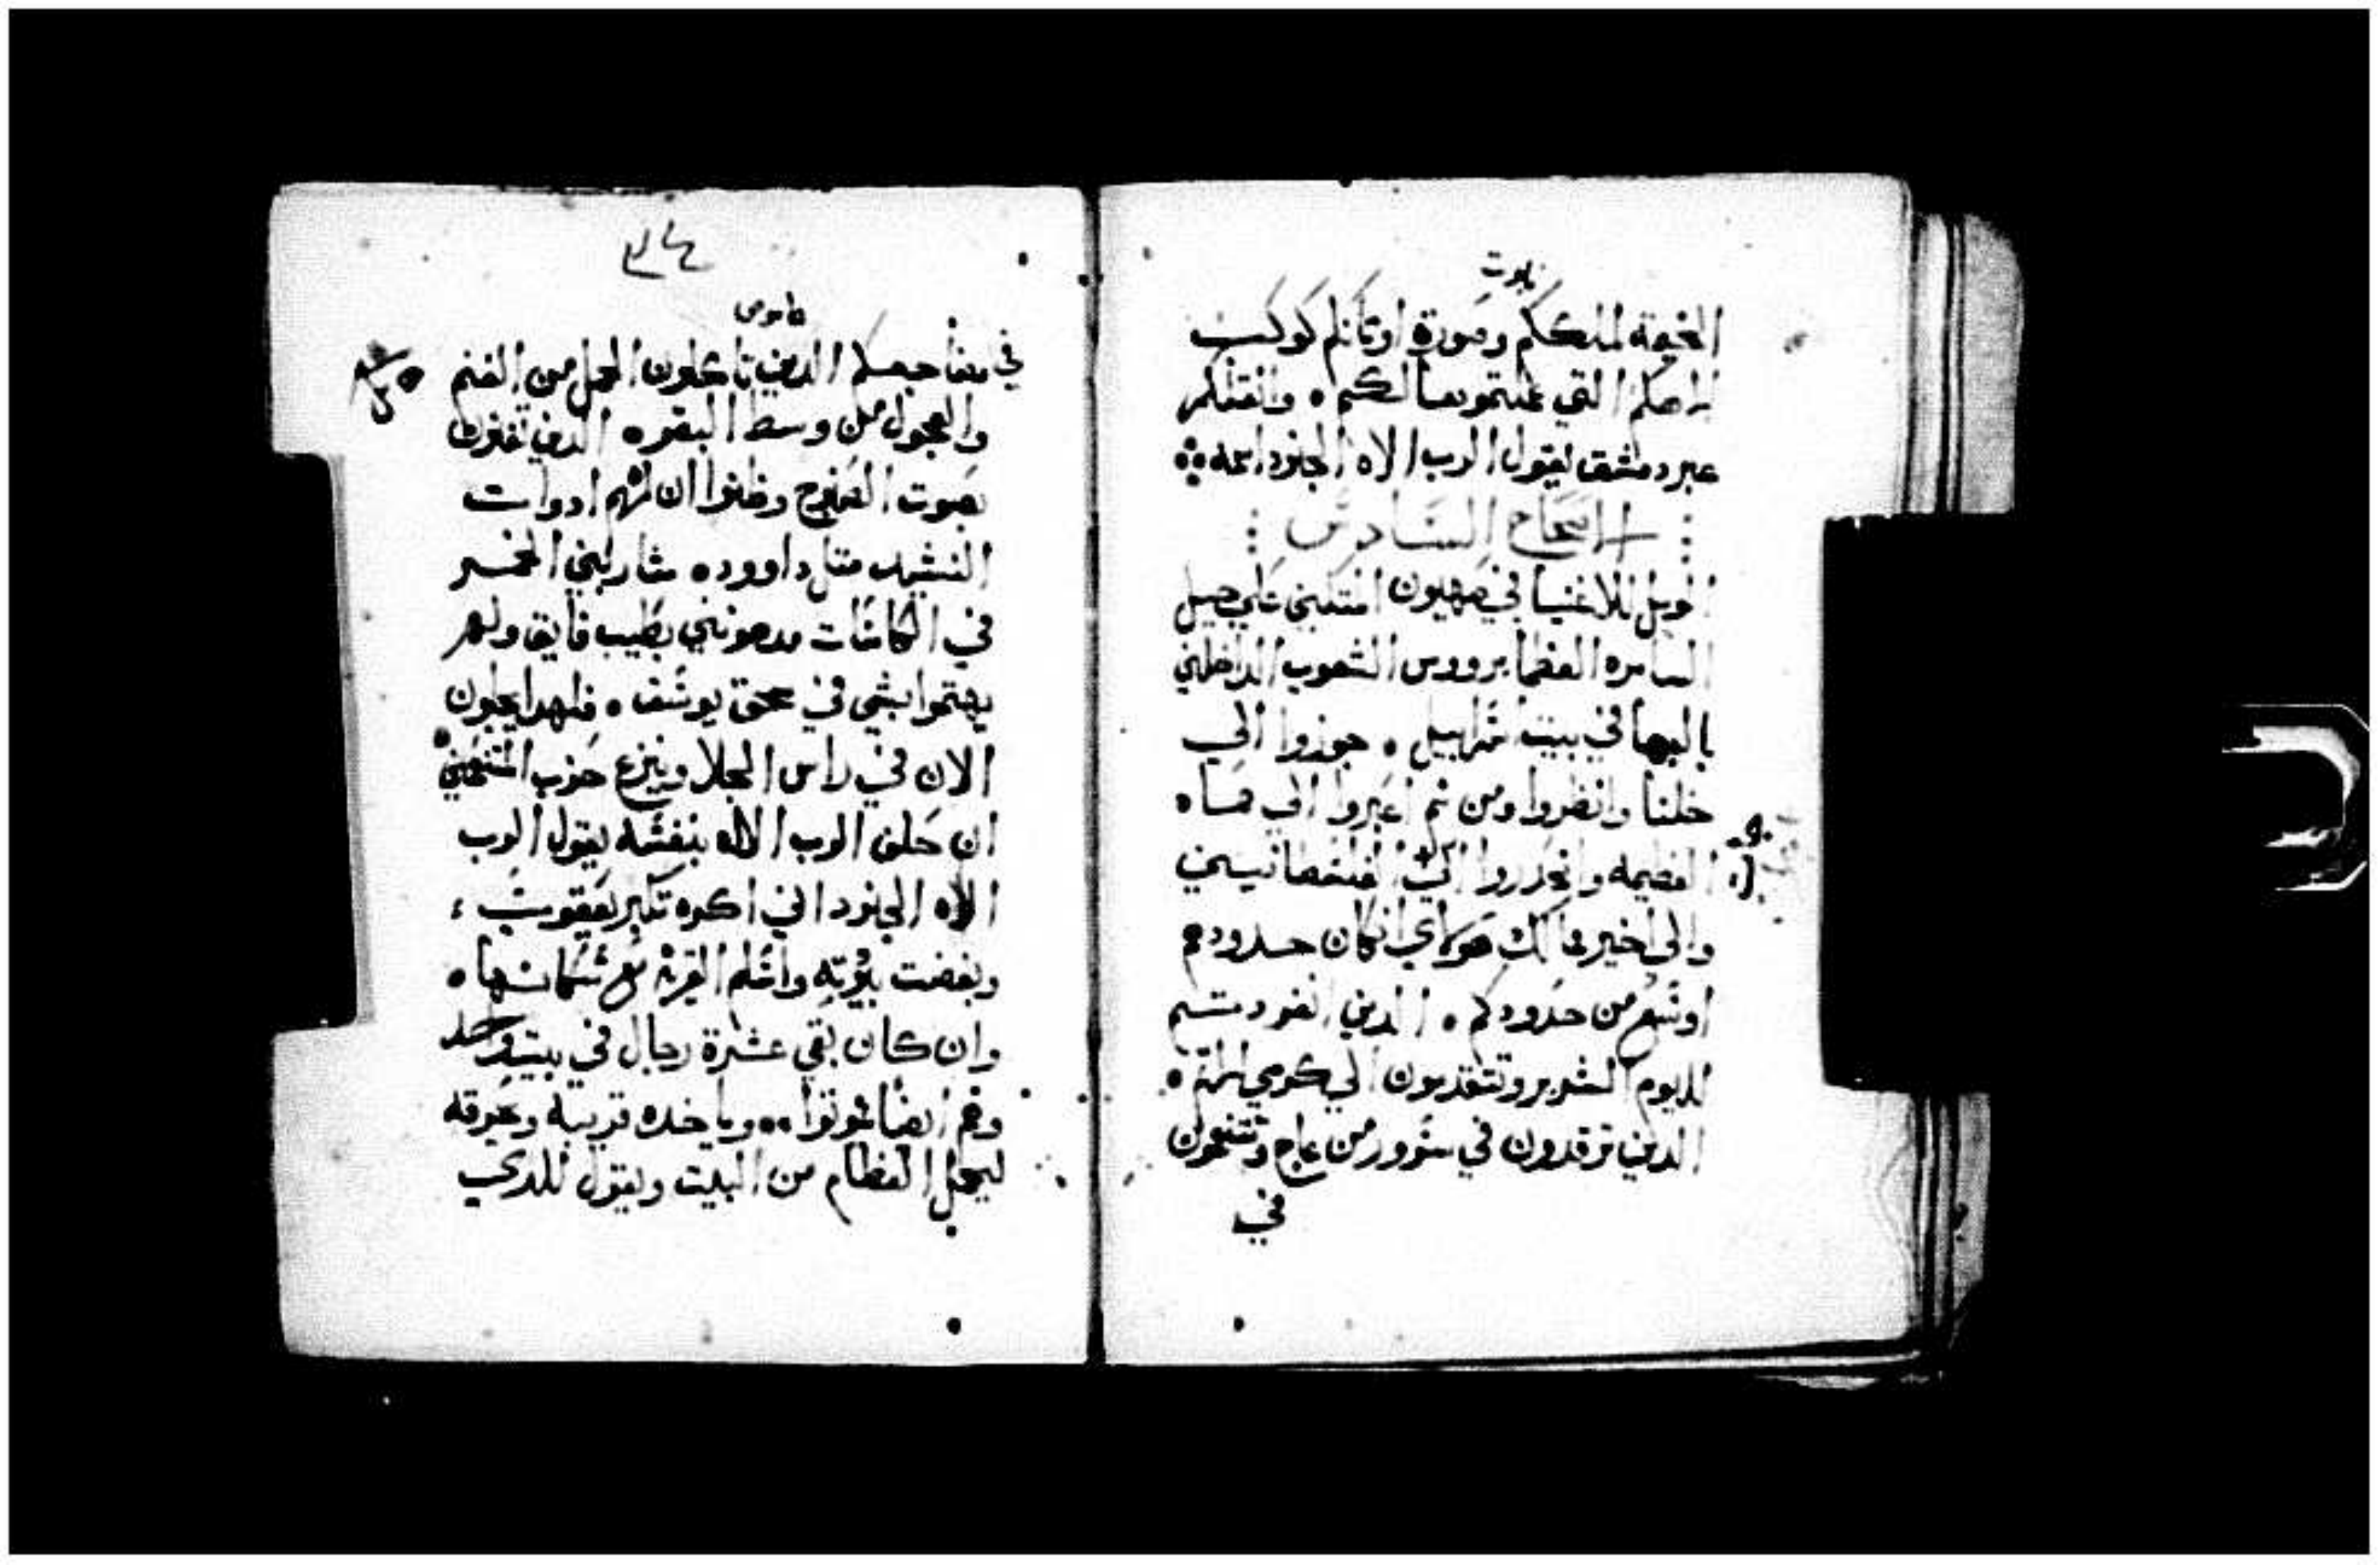 الخيمة لملككم وصورة اوثانكم كوكب
الاهكم التي عملتموها لكم ٥ وانقلكم
عبر دمشق يقول الرب الاه الجنود اسمه
الاصحاح السادس
الويل للاغنيا في صهيون المتكين علي جبل
السامره العظما برووس الشعوب الداخلين
بالبها في بيت اسرابيل ٥ جوزوا الي
خلنا وانظروا ومن ثم اعبروا الي حماه
العظيمه وانحدروا الي الفلسطانيين
والى اخير ممالك هولاي ان كان حدودهم
اوسع من حدودكم ٥ الدين انفردتم
لليوم الشرير وتتقدمون الي كرسي الاثم ٥
الدين ترقدون في سرور من عاج وتتنعمون
في
في مضاجعكم الدين تاكلون الحمل من الغنم
والعجول من وسط البقر ٥ الدين تغنون
بصوت الصنوج وظنوا ان لهم ادوات
النشيد متل داوود ٥ شاربين الخمر
في الكاسات مدهونين بطيب فايق ولم
يهتموا بشي في سحق يوسف ٥ فلهدا يجلون
الان في راس الجلا وينزع حزب المتنعمين
ان حلف الرب الاله بنفسه يقول الرب
الاه الجنود اني اكره تكبر يعقوب
وبغضت بيوته واسلم القريه مع سكانها ٥
وان كان بقي عشرة رجال في بيت واحد
وهم ايضا يموتوا ٥٥ وياخده قريبه وعرقه
ليحمل العظام من البيت ويقول للدي